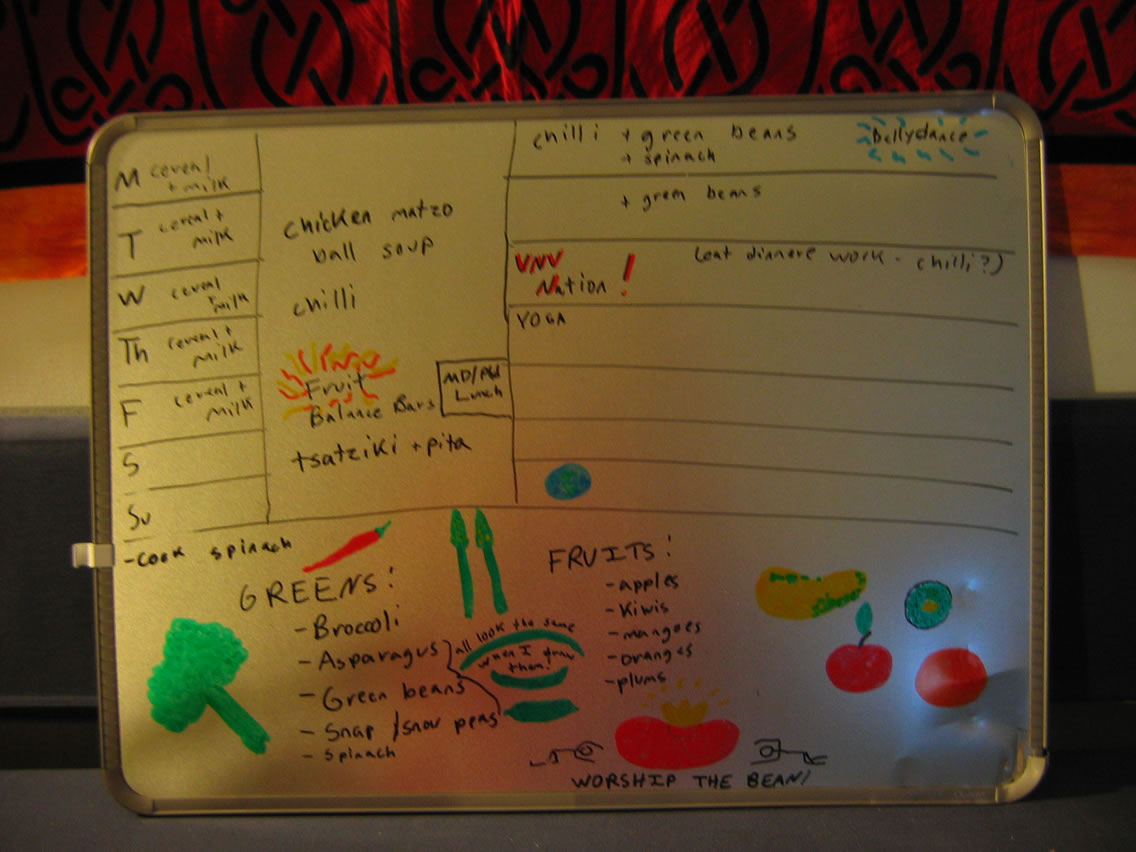 M cereal
+ milk
T cereal +
milk
W cereal
+ milk
Th cereal +
milk
F cereal +
milk
S
Su
chicken matzo
ball soup
chilli
Fruit
Balance Bars
MD/PhD
Lunch
tsatziki + pita
chilli + green beans
+ spinach
Bellydance
+ green beans
VNV
Nation !
(eat dinner @ work - chilli?)
YOGA
- cook spinach
GREENS:
- Broccoli
- Asparagus
- Green beans
- Snap / snow peas
- spinach
all look the same
when I draw
them!
FRUITS:
- apples
- Kiwis
- mangoes
- oranges
- plums
WORSHIP THE BEAN!